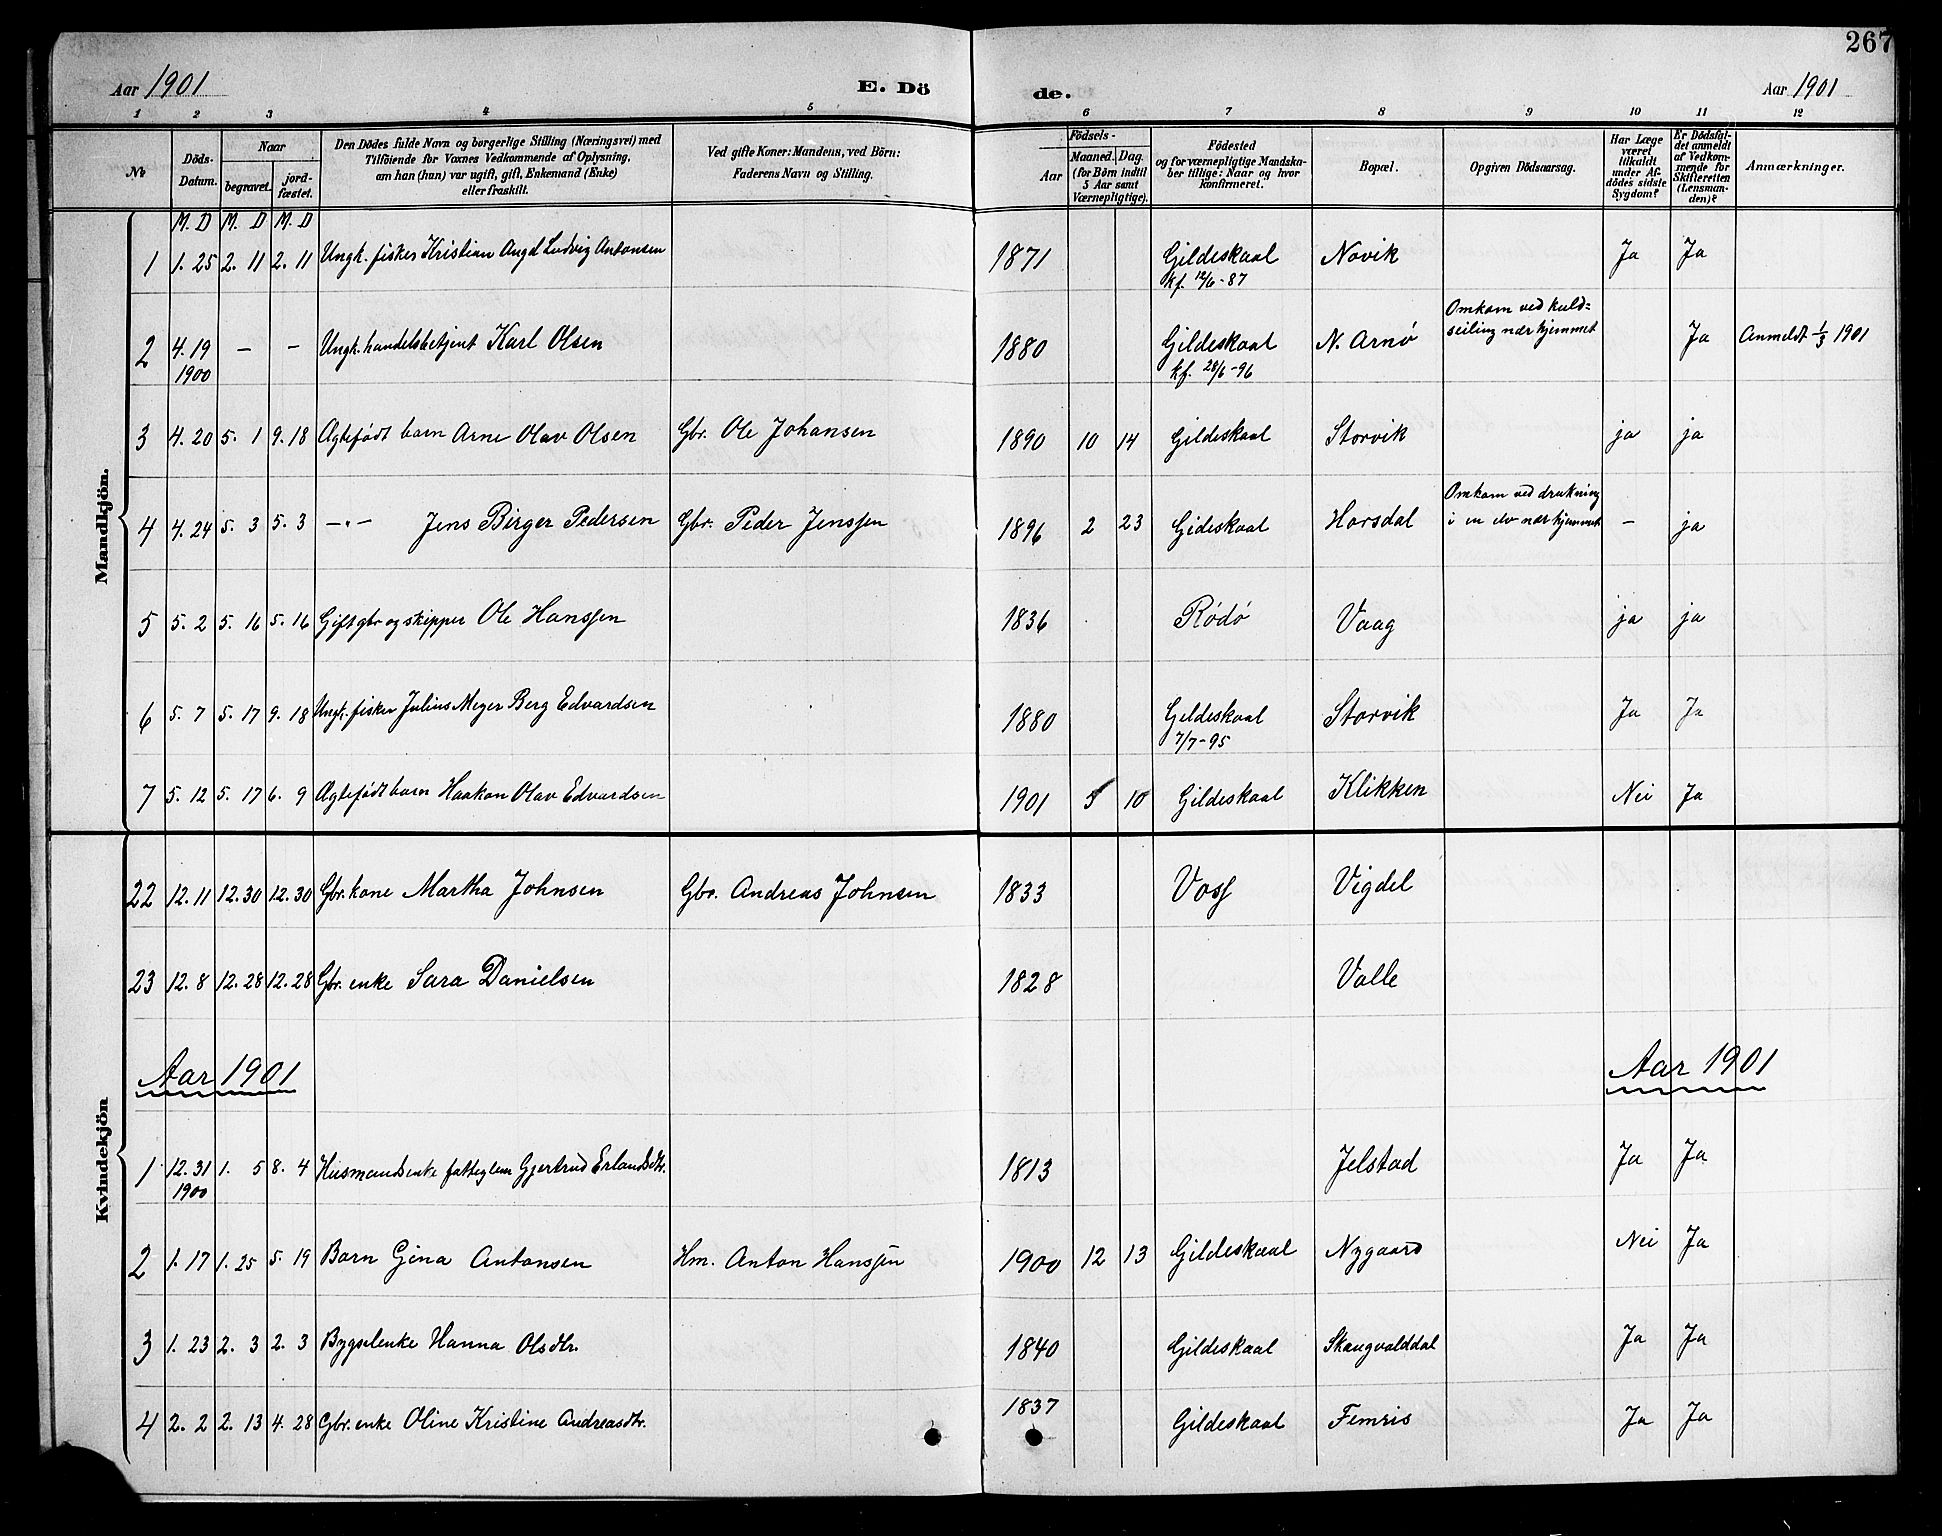 267
Aar 1901 E. Dö de. Aar 1901
1 2 3 4 5 6 7 8 9 10 11 12
No
Döds-Datum.
Naar
begravet.
jord-fæstet.
Den Dödes fulde Navn og borgerlige Stilling (Næringsvei) med
Tilföiende for Voxnes Vedkommende af Oplysning,
om han (hun) var ugift, gift, Enkemand (Enke)
eller fraskilt.
Ved gifte Koner: Mandens, ved Börn:
Faderens Navn og Stilling.
Födsels-
Aar
Maaned. Dag.
(for Börn indtil
5 Aar samt
Værnepligtige).
Födested
og for værnepligtige Mandska-
ber tillige: Naar og hvor
konfirmeret.
Bopæl.
Opgiven Dödsaarsag.
Har Læge
været
tilkaldt
under Af-
dödes sidste
Sygdom?
Er Dödsfal-
det anmeldt
af Vedkom-
mende for
Skifteretten
(Lensman-
den)?
Anmærkninger.
Mandkjön.
M. D M. D M. D
1 1. 25 2. 11 2. 11 Ungk. fisker Kristian Augd Ludvig Antonsen 1871 Gildeskaal Novik Ja Ja
kf. 12/6-87
2 4. 19 — — Ungk. handelsbetjent Karl Olsen 1880 Gildeskaal N. Arnø Omkom ved kuld- Ja Anmeldt 1/3 1901
1900 kf. 28/6-96 seiling nær hjemmet
3 4. 20 5. 1 9. 18 Ægtefødt barn Arne Olav Olsen Gbr. Ole Johansen 1890 10 14 Gildeskaal Storvik ja ja
4 4. 24 5. 3 5. 3 —"— Jens Birger Pedersen Gbr. Peder Jenssen 1896 2 23 Gideskaal Horsdal Omkom ved drukning — ja
i en elv nær hjemmet
5 5. 2 5. 16 5. 16 Gift gbr og skipper Ole Hanssen 1836 Rødø Vaag ja ja
6 5. 7 5. 17 9. 18 Ungk. fisker Julius Meyer Berg Edvardsen 1880 Gildeskaal Storvik Ja Ja
7/7-95
7 5. 12 5. 17 6. 9 Ægtefødt barn Haakon Olav Edvardsen 1901 5 10 Gildeskaal Klikken Nei Ja
Kvindekjön
22 12. 11 12. 30 12. 30 Gbr. kone Martha Johnsen Gbr. Andreas Johnsen 1833 Voss Vigdel
23 12. 8 12. 28 12. 28 Gbr. enke Sara Danielsen 1828 Valle
Aar 1901 Aar 1901
1 12. 31 1. 5 8. 4 Husmandsenke fattiglem Gjertrud Erlandsdtr. 1813 Jelstad Ja Ja
1900
2 1. 17 1. 25 5. 19 Barn Gina Antonsen Hm. Anton Hanssen 1900 12 13 Gildeskaal Nygaard Nei Ja
3 1. 23 2. 3 2. 3 Bygselenke Hanna Olsdtr. 1840 Gildeskaal Skaugvolddal Ja Ja
4 2. 2 2. 13 4. 28 Gbr. enke Oline Kristine Andreasdtr. 1837 Gildeskaal Femris Ja Ja